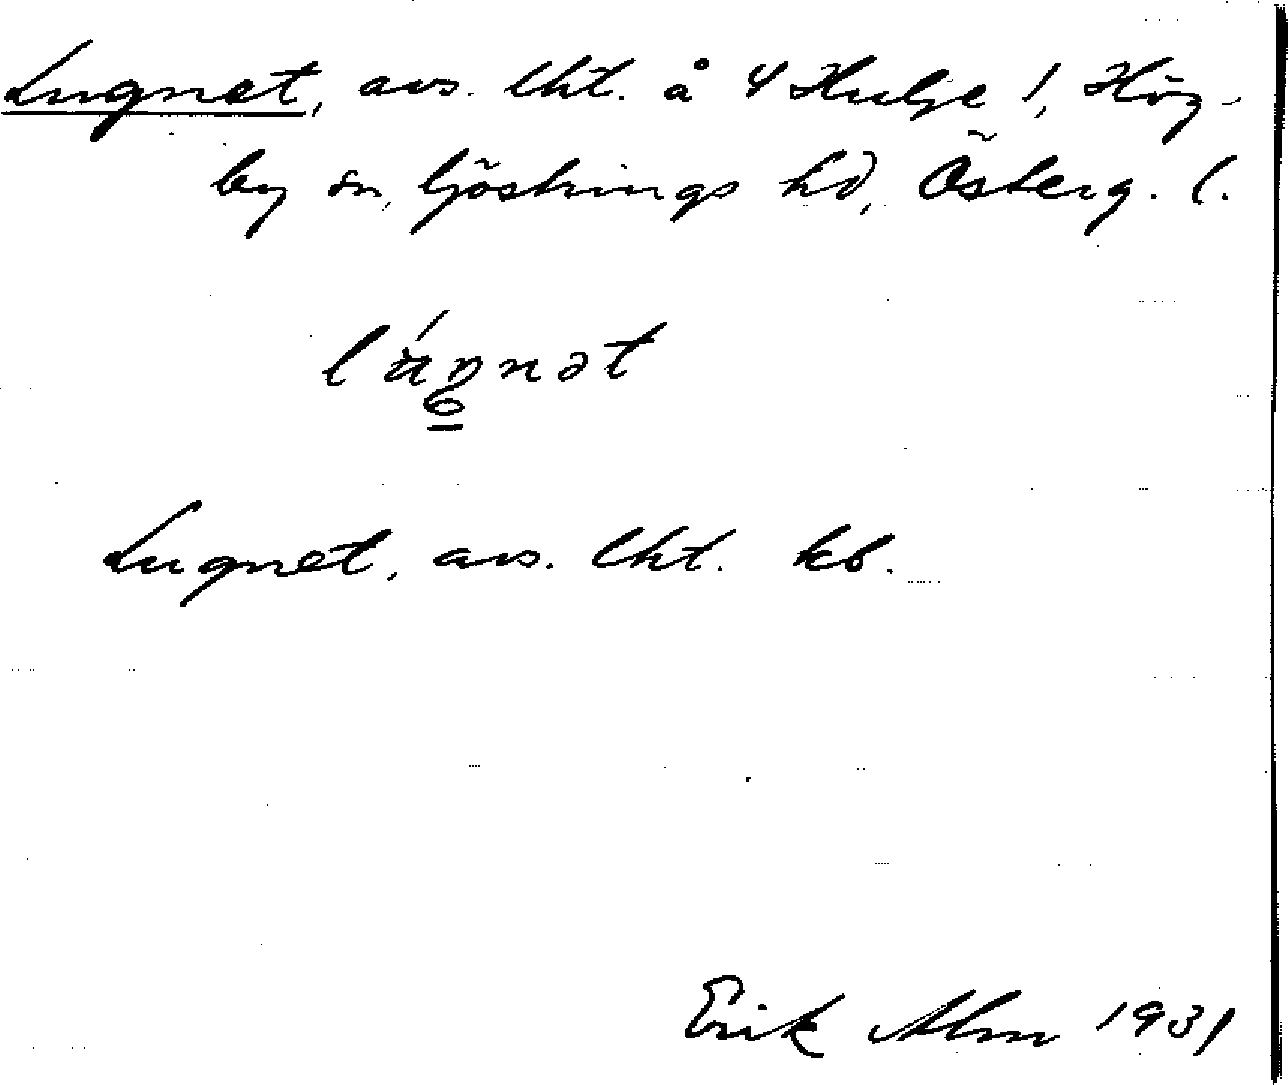 Lugnet, avs. lht. å 4 Hulje 1, Hög-
by sn, Göstrings hd, Österg. l.
lúŋnət
Lugnet, avs. lht. kb.
Erik Alm 1931